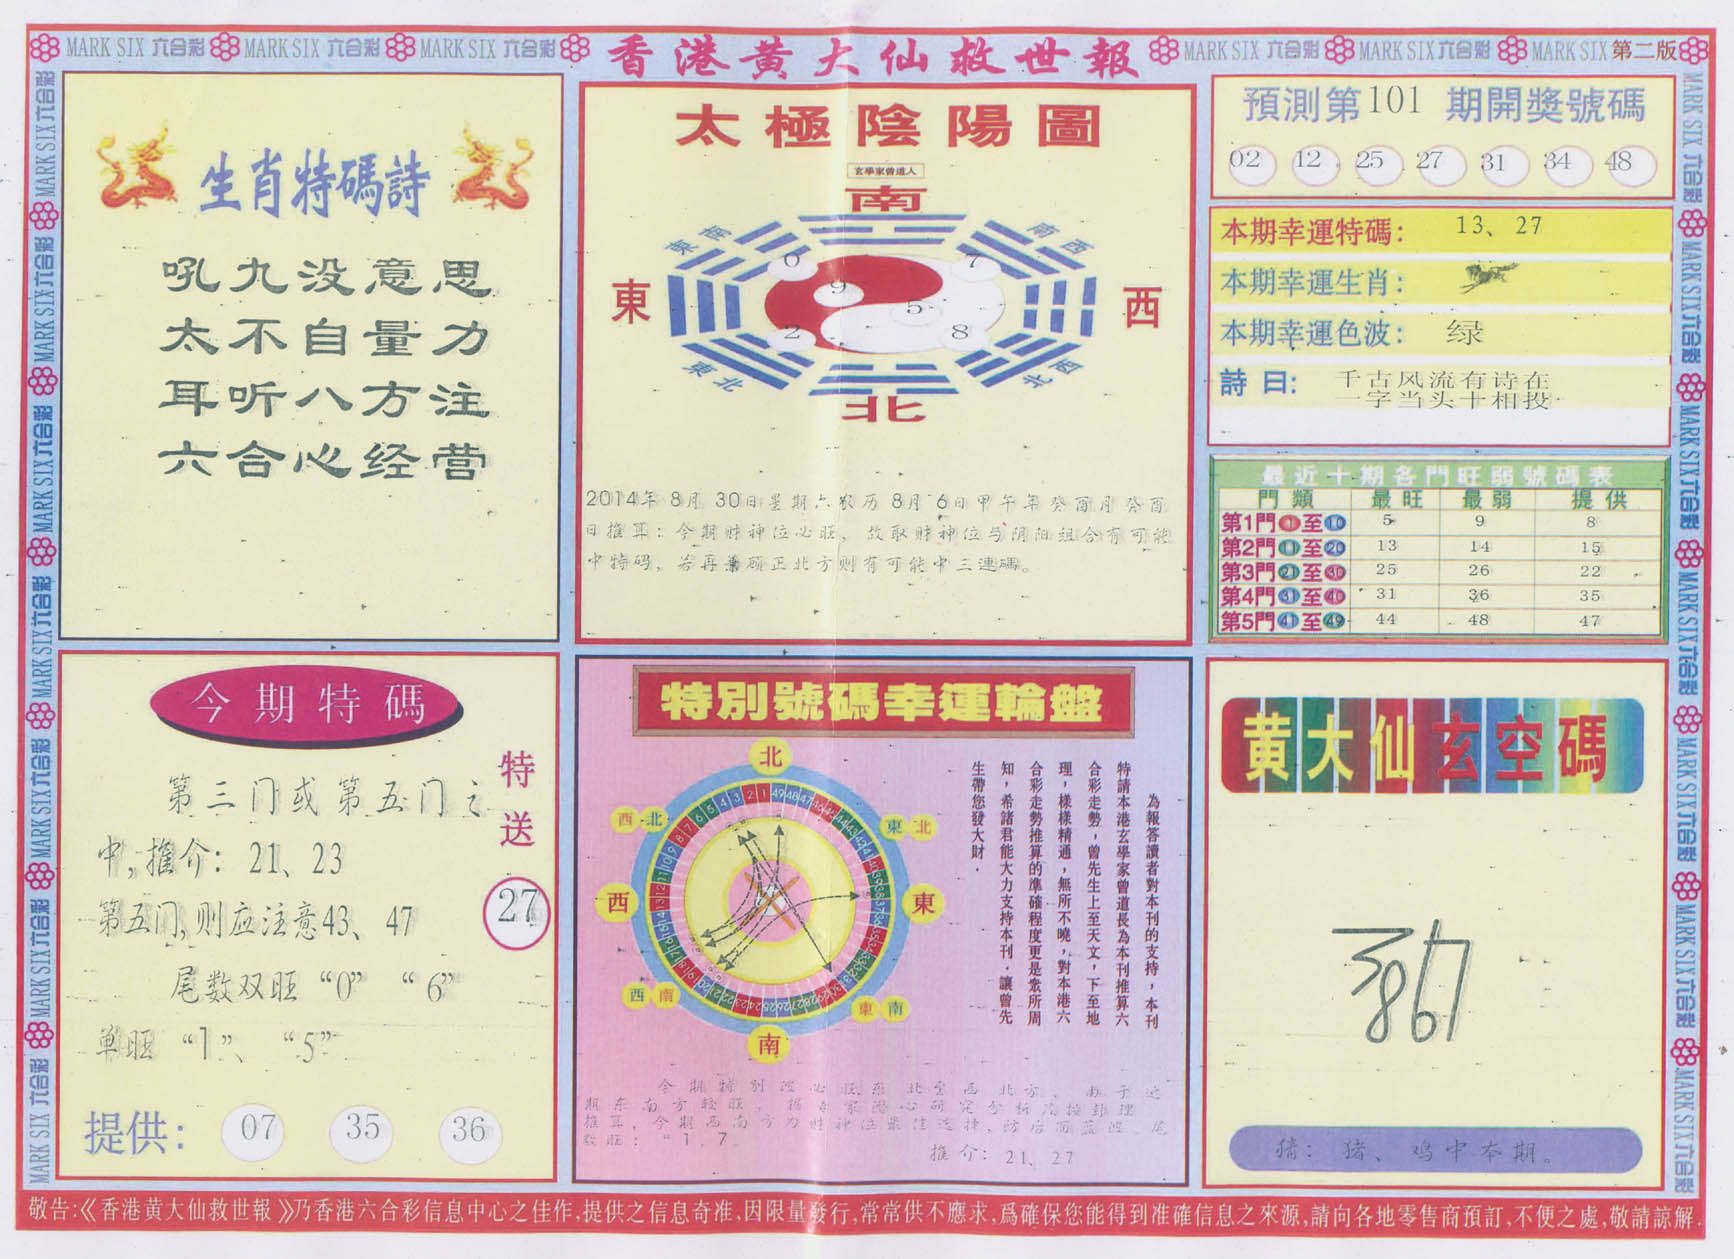 MARK SIX 六合彩 MARK SIX 六合彩 MARK SIX 六合彩 香港黄大仙救世報 MARK SIX 六合彩 MARK SIX 六合彩 MARK SIX 第二版
生肖特碼詩
吼九没意思
太不自量力
耳听八方注
六合心经营
太極陰陽圖
玄學家曾道人
南
東南 南西
東 西
0 7
9 5
2 8
東北 北西
北
2014年8月30日星期六农历8月6日甲午年癸酉月癸酉
日推算：今期财神位必旺，故取财神位与阴阳组合有可能
中特码，若再兼顾正北方则有可能中三連碼。
預測第101期開獎號碼
02 12 25 27 31 34 48
本期幸運特碼： 13、27
本期幸運生肖：
本期幸運色波： 绿
詩曰： 千古风流有诗在
一字当头十相投
最近十期各門旺弱號碼表
門類 最旺 最弱 提供
第1門1至10 5 9 8
第2門11至20 13 14 15
第3門21至30 25 26 22
第4門31至40 31 36 35
第5門41至49 44 48 47
今期特碼
第三门或第五门之
中,推介：21、23
第五门,则应注意43、47
尾数双旺“0”“6”
单旺“1”、“5”
特送
27
提供： 07 35 36
特別號碼幸運輪盤
北
西北 東北
西 東
西南 東南
南
為報答讀者對本刊的支持，本刊
特請本港玄學家曾道長為本刊推算六
合彩走勢，曾先生上至天文，下至地
理，樣樣精通，無所不曉，對本港六
合彩走勢推算的準確程度更是衆所周
知，希諸君能大力支持本刊．讓曾先
生帶您發大財．
推介：21、27
黄大仙玄空碼
猜：猪、鸡中本期。
敬告:《香港黄大仙救世報》乃香港六合彩信息中心之佳作,提供之信息奇准,因限量發行,常常供不應求,爲確保您能得到准確信息之來源,請向各地零售商預訂,不便之處,敬請諒解.